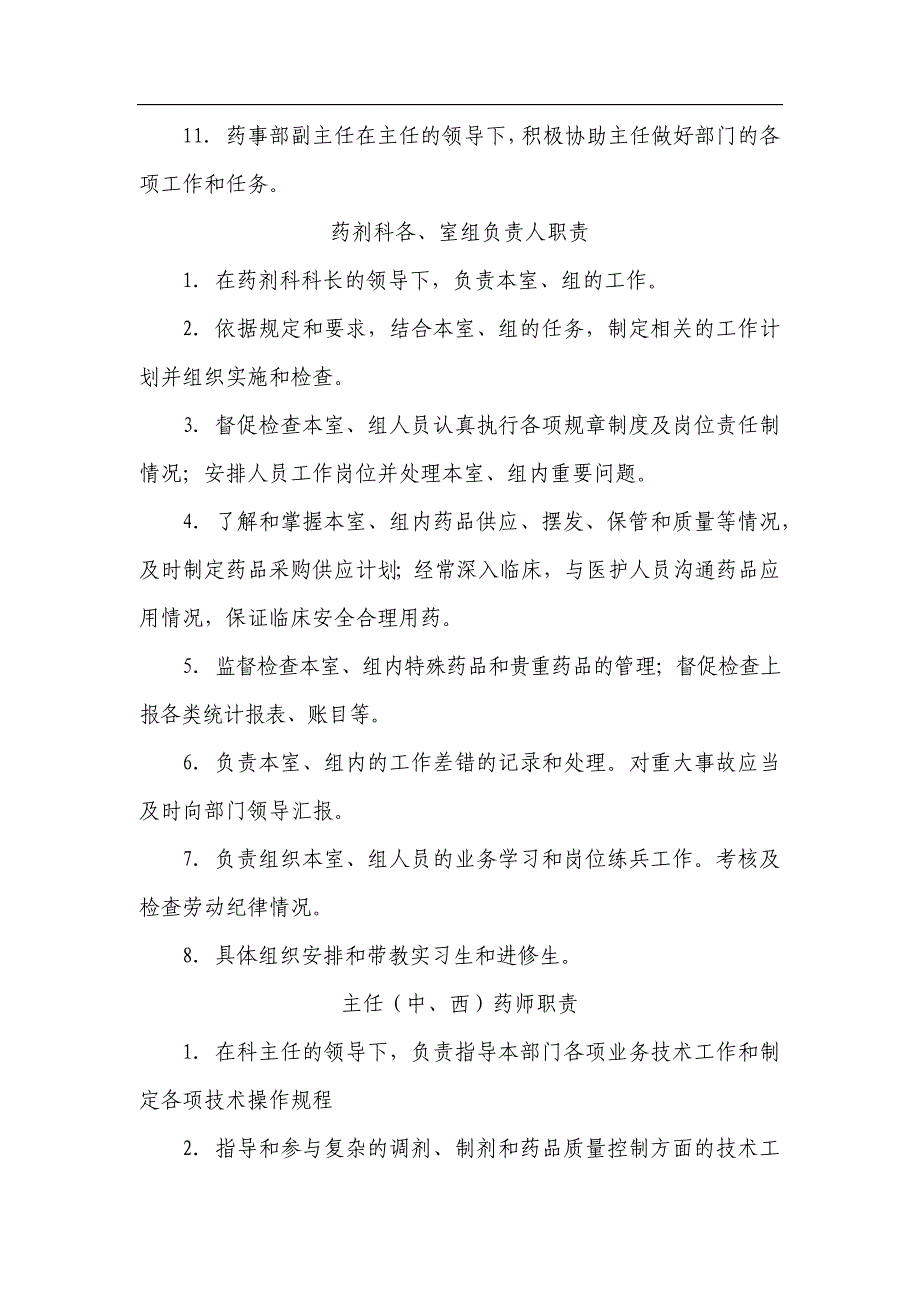 11. 药事部副主任在主任的领导下，积极协助主任做好部门的各
项工作和任务。
药剂科各、室组负责人职责
1. 在药剂科科长的领导下，负责本室、组的工作。
2. 依据规定和要求，结合本室、组的任务，制定相关的工作计
划并组织实施和检查。
3. 督促检查本室、组人员认真执行各项规章制度及岗位责任制
情况；安排人员工作岗位并处理本室、组内重要问题。
4. 了解和掌握本室、组内药品供应、摆发、保管和质量等情况，
及时制定药品采购供应计划；经常深入临床，与医护人员沟通药品应
用情况，保证临床安全合理用药。
5. 监督检查本室、组内特殊药品和贵重药品的管理；督促检查上
报各类统计报表、账目等。
6. 负责本室、组内的工作差错的记录和处理。对重大事故应当
及时向部门领导汇报。
7. 负责组织本室、组人员的业务学习和岗位练兵工作。考核及
检查劳动纪律情况。
8. 具体组织安排和带教实习生和进修生。
主任（中、西）药师职责
1. 在科主任的领导下，负责指导本部门各项业务技术工作和制
定各项技术操作规程
2. 指导和参与复杂的调剂、制剂和药品质量控制方面的技术工